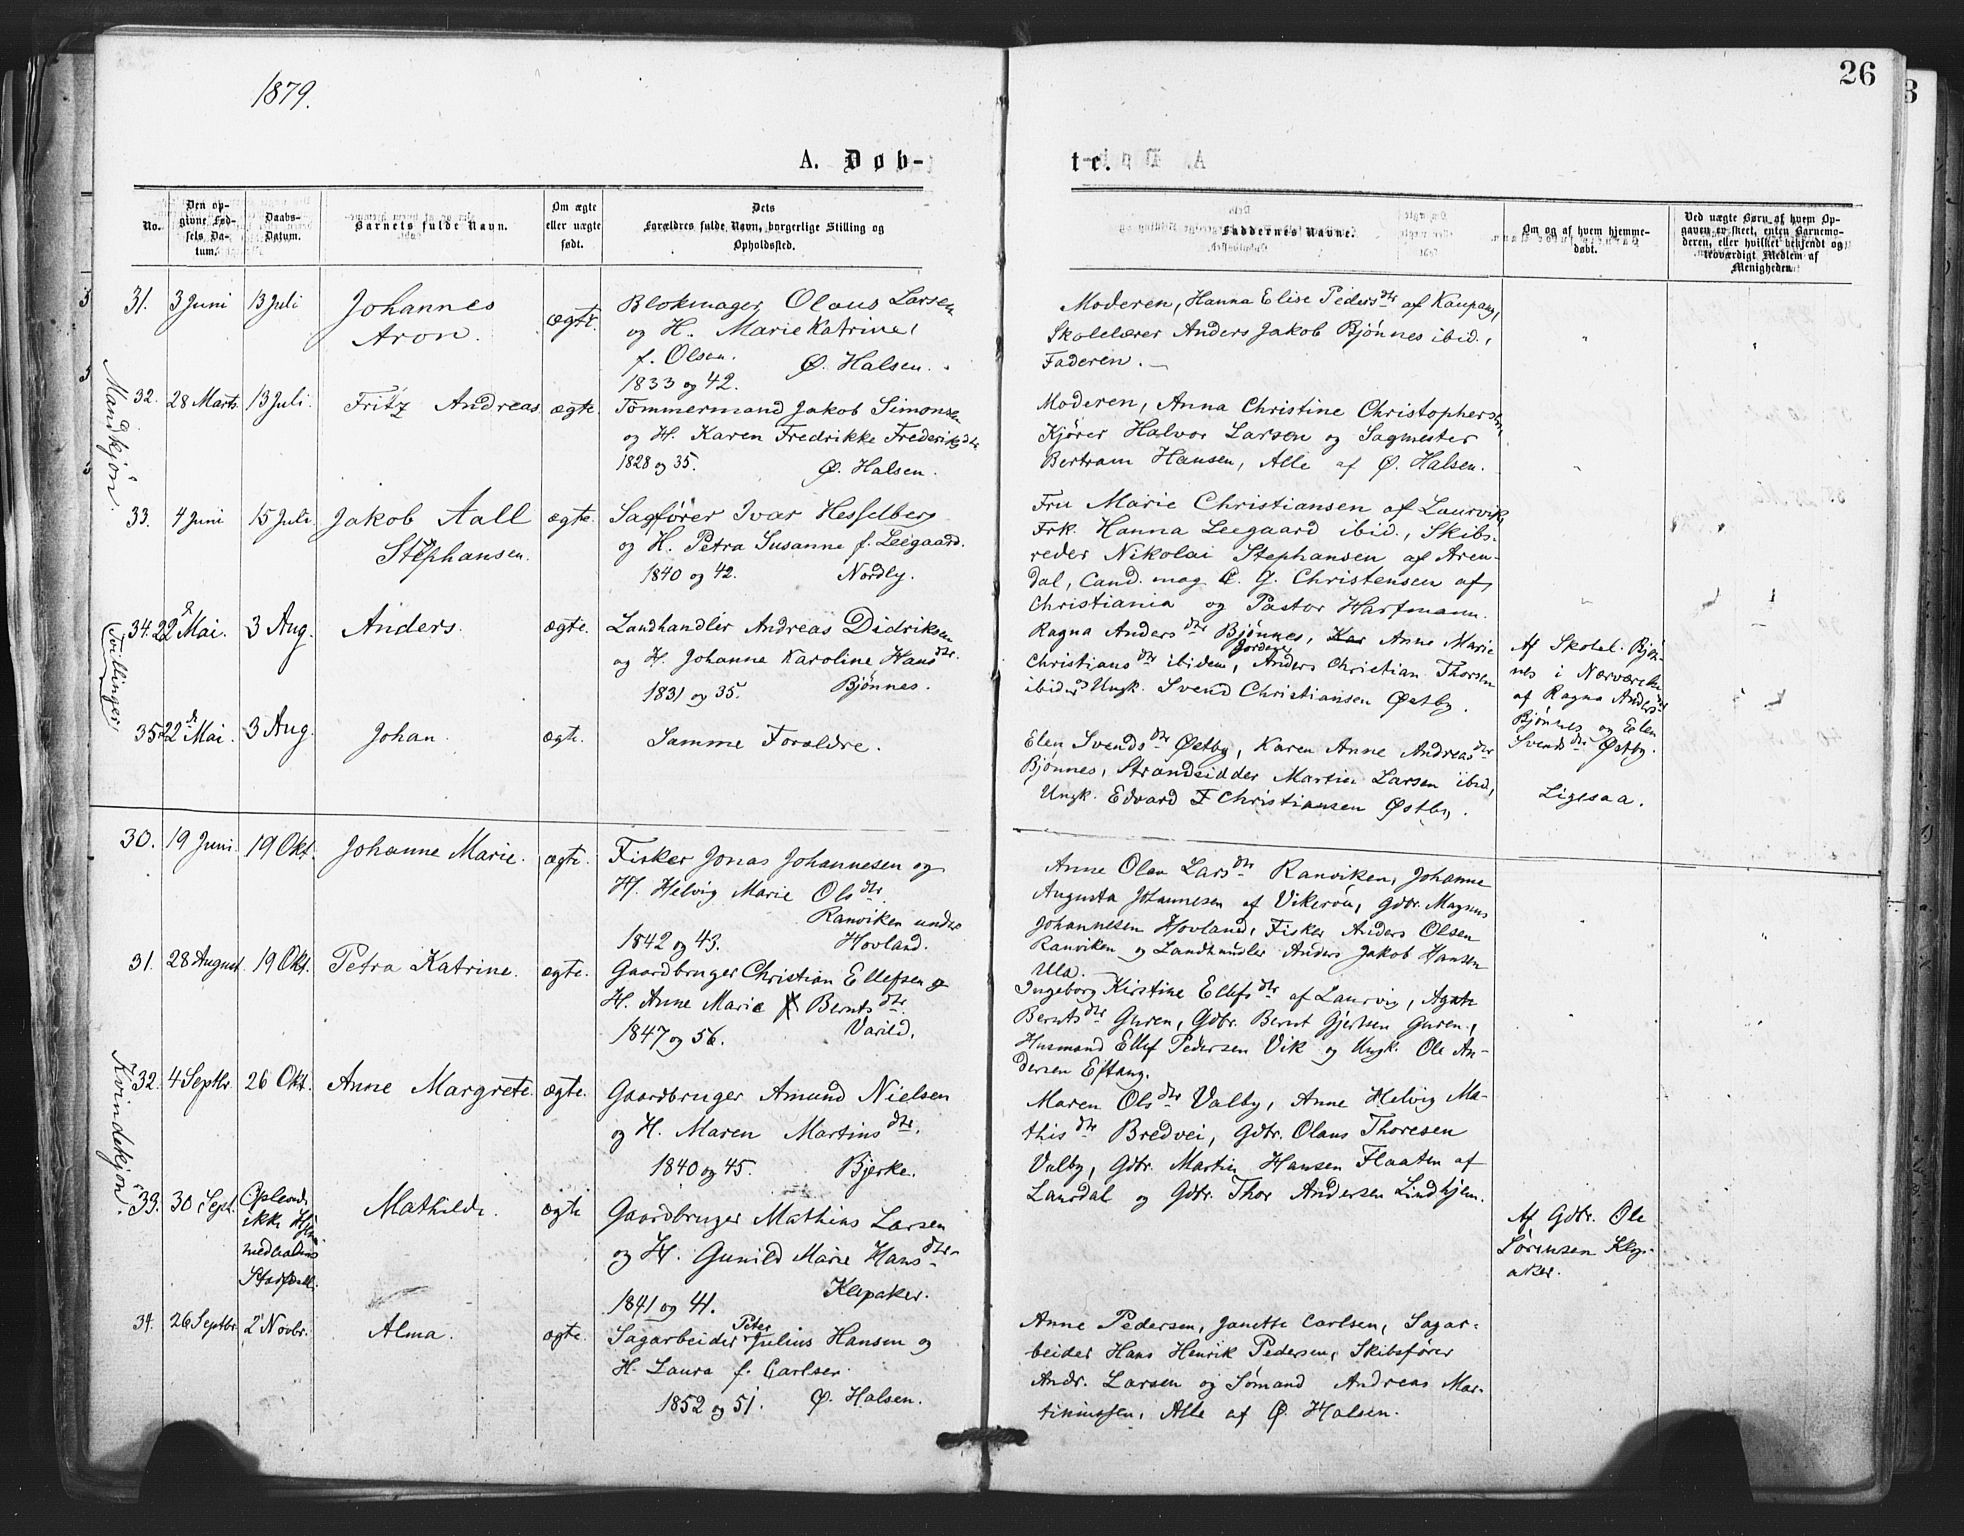 1879.
26
A. Døb-
te.
No.
Den op-
givne Fød-
sels Da-
tum.
Daabs-
Datum.
Barnets fulde Navn.
Om ægte
eller uægte
født.
Dets
Forældres fulde Navn, borgerlige Stilling og
Opholdssted.
Faddernes Navne.
Om og af hvem hjemme-
døbt.
Ved uægte Børn af hvem Op-
gaven er skeet, enten Barnemo-
deren, eller hvilket bekjendt og
troværdigt Medlem af
Menigheden.
Mandkjøn.
31. 3 Juni 13 Juli Johannes
Aron.
ægte.
Blokmager Olaus Larsen
og H. Marie Katrine,
f. Olsen. Ø. Halsen.
1833 og 42.
Moderen, Hanna Elise Pedersdtr af Kaupang,
Skolelærer Anders Jakob Bjønnes ibid.,
Faderen.
32. 28 Marts. 13 Juli. Fritz Andreas ægte.
Tømmermand Jakob Simonsen
og H. Karen Fredrikke Frederiksdtr
1828 og 35. Ø. Halsen.
Moderen, Anna Christine Christophersen,
Kjører Halvor Larsen og Sagmester
Bertram Hansen, Alle af Ø. Halsen.
33. 4 Juni 15 Juli Jakob Aall
Stephansen.
ægte.
Sagfører Ivar Hesselberg
og H. Petra Susanne f. Leegaard.
1840 og 42. Nordly.
Fru Marie Christiansen af Laurvik,
Frk. Hanna Leegaard ibid., Skibs-
reder Nikolai Stephansen af Aren-
dal, Cand. mag C. G. Christensen af
Christiania og Pastor Hartmann.
(Tvillinger)
34. 22d Mai. 3 Aug. Anders. ægte.
Landhandler Andreas Didriksen
og H. Johanne Karoline Hansdtr.
1831 og 35. Bjønnes.
Ragna Andersdtr Bjønnes, Kar Anne Marie
Christiansdtr ibidem, Anders Christian Thorsen
ibidem Ungk. Svend Christiansen Østby.
Af Skolel. Bjøn-
nes i Nærværelse
af Ragna Andersdtr
Bjønnes og Elen
Svendsdtr Østby.
35. 22d Mai. 3 Aug. Johan. ægte. Samme Forældre.
Elen Svendsdtr Østby, Karen Anne Andreasdtr
Bjønnes, Strandsidder Martin Larsen ibid,
Ungk. Edvard F Christiansen Østby.
Ligesaa.
Kvindekjøn.
30. 19 Juni. 19 Okt. Johanne Marie. ægte.
Fisker Jonas Johannesen og
H. Helvig Marie Olsdtr.
Ranviken under
1842 og 43. Hovland.
Anne Olea Larsdtr Ranviken, Johanne
Augusta Johannesen af Vikerøn, Gdbr. Magnus
Johannesen Hovland, Fisker Anders Olsen
Ranviken og Landhandler Anders Jakob Hansen
Ula.
31. 28 August. 19 Okt. Petra Katrine. ægte.
Gaardbruger Christian Ellefsen og
H. Anne Marie Berntsdtr.
1847 og 56. Varild.
Ingeborg Kirstine Ellefsdtr af Laurvig, Agate
Berntsdtr Guren, Gdbr. Bernt Gjertsen Guren,
Husmand Ellef Pedersen Vik og Ungk. Ole An-
dersen Eftang.
32. 4 Septbr. 26 Okt. Anne Margrete. ægte.
Gaardbruger Amund Nielsen
og H. Maren Martinsdtr.
1840 og 45. Bjerke.
Maren Olsdtr Valby, Anne Helvig Ma-
thisdtr Bredvei, Gdbr. Olaus Thoresen
Valby, Gdbr. Martin Hansen Flaaten af
Lansdal og Gdbr. Thor Andersen Lindhjem.
33. 30 Sept. Oplevede
ikke Hjem
medtalens
Stadfæst.
Mathilde. ægte
Gaardbruger Mathias Larsen
og H. Gunild Marie Hansdtr.
1841 og 41. Klepaker.
Af Gdbr. Ole
Sørensen Klep-
aker.
34. 26 Septbr. 2 Novbr. Alma. ægte.
Sagarbeider Peter Julius Hansen og
H. Laura f. Carlsen
1852 og 51. Ø. Halsen.
Anne Pedersen, Janette Carlsen, Sagar-
beider Hans Henrik Pedersen, Skibsfører
Andr. Larsen og Sømand Andreas Mar-
tinussen, Alle af Ø. Halsen.